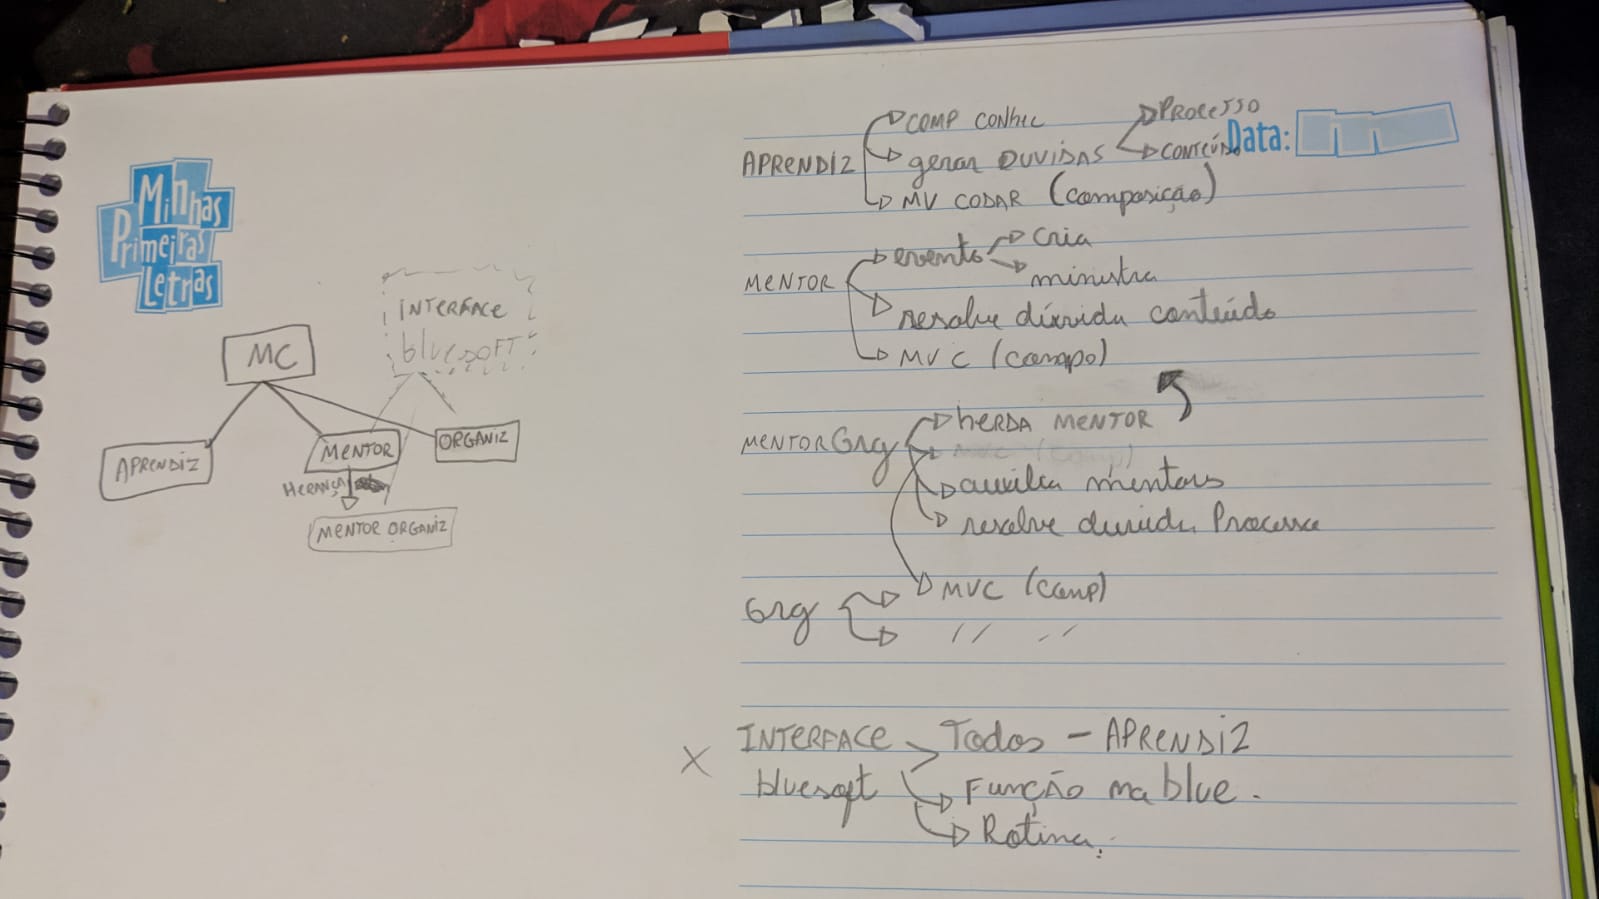 Minhas
Primeiras
Letras
INTERFACE
bluesoft
MC
APRENDIZ
MENTOR
ORGANIZ
HERANÇA
MENTOR ORGANIZ
Data:
APRENDIZ
COMP CONHEC
gerar DUVIDAS
PROCESSO
CONTEÚDO
MV CODAR (composição)
MENTOR
evento
cria
ministra
resolve dúvida conteúdo
MVC (compo)
MENTOR Org
herda MENTOR
MVC (comp)
auxilia mentores
resolve duvida Processo
Org
MVC (comp)
// //
X INTERFACE Todos - APRENDIZ
bluesoft Função na blue.
Rotina.